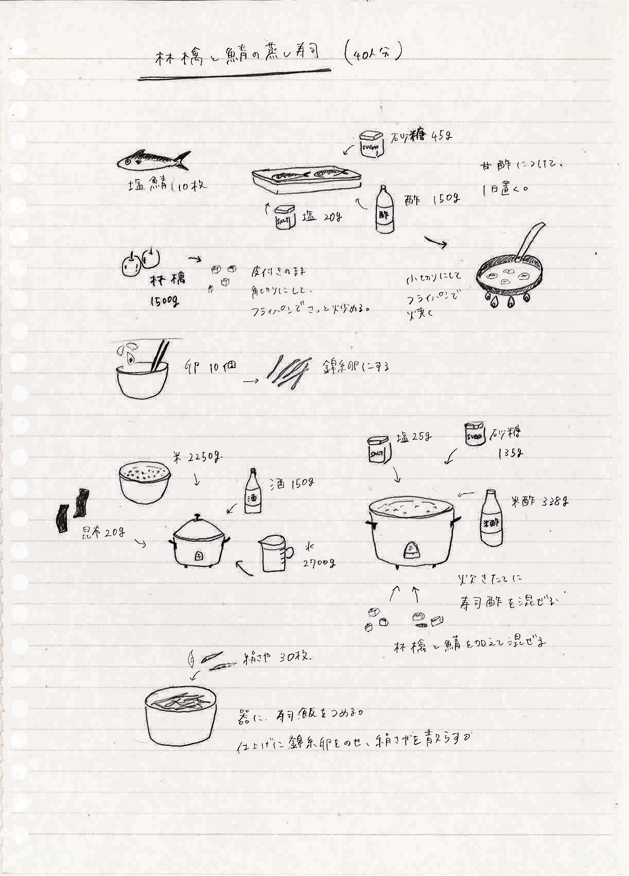 林檎と鯖の蒸し寿司 (40人分)
砂糖 45g
SUGAR
塩鯖 10枚
塩 20g
SALT
酢 150g
酢
甘酢につけて、
1日置く。
林檎
1500g
皮付きのまま
角切りにして、
フライパンでさっと炒める。
小切りにして
フライパンで
焼く
卵 10個
錦糸卵にする
米 2250g
酒 150g
酒
昆布 20g
水
2700g
塩 25g
SALT
砂糖
135g
SUGAR
米酢 338g
米酢
炊きたてに
寿司酢を混ぜる
林檎と鯖を加えて混ぜる
絹さや 30枚
器に、寿司飯をつめる。
仕上げに錦糸卵をのせ、絹さやを散らする